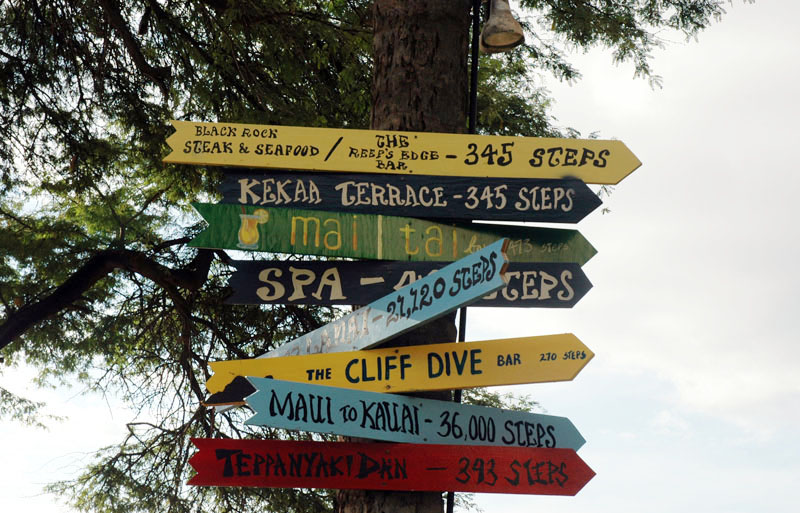 BLACK ROCK
STEAK & SEAFOOD / THE REEF'S EDGE BAR - 345 STEPS
KEKAA TERRACE - 345 STEPS
mai tai STEPS
SPA - STEPS
LANAI - 21,120 STEPS
THE CLIFF DIVE BAR 270 STEPS
MAUI TO KAUAI - 36,000 STEPS
TEPPANYAKI DAN - 393 STEPS